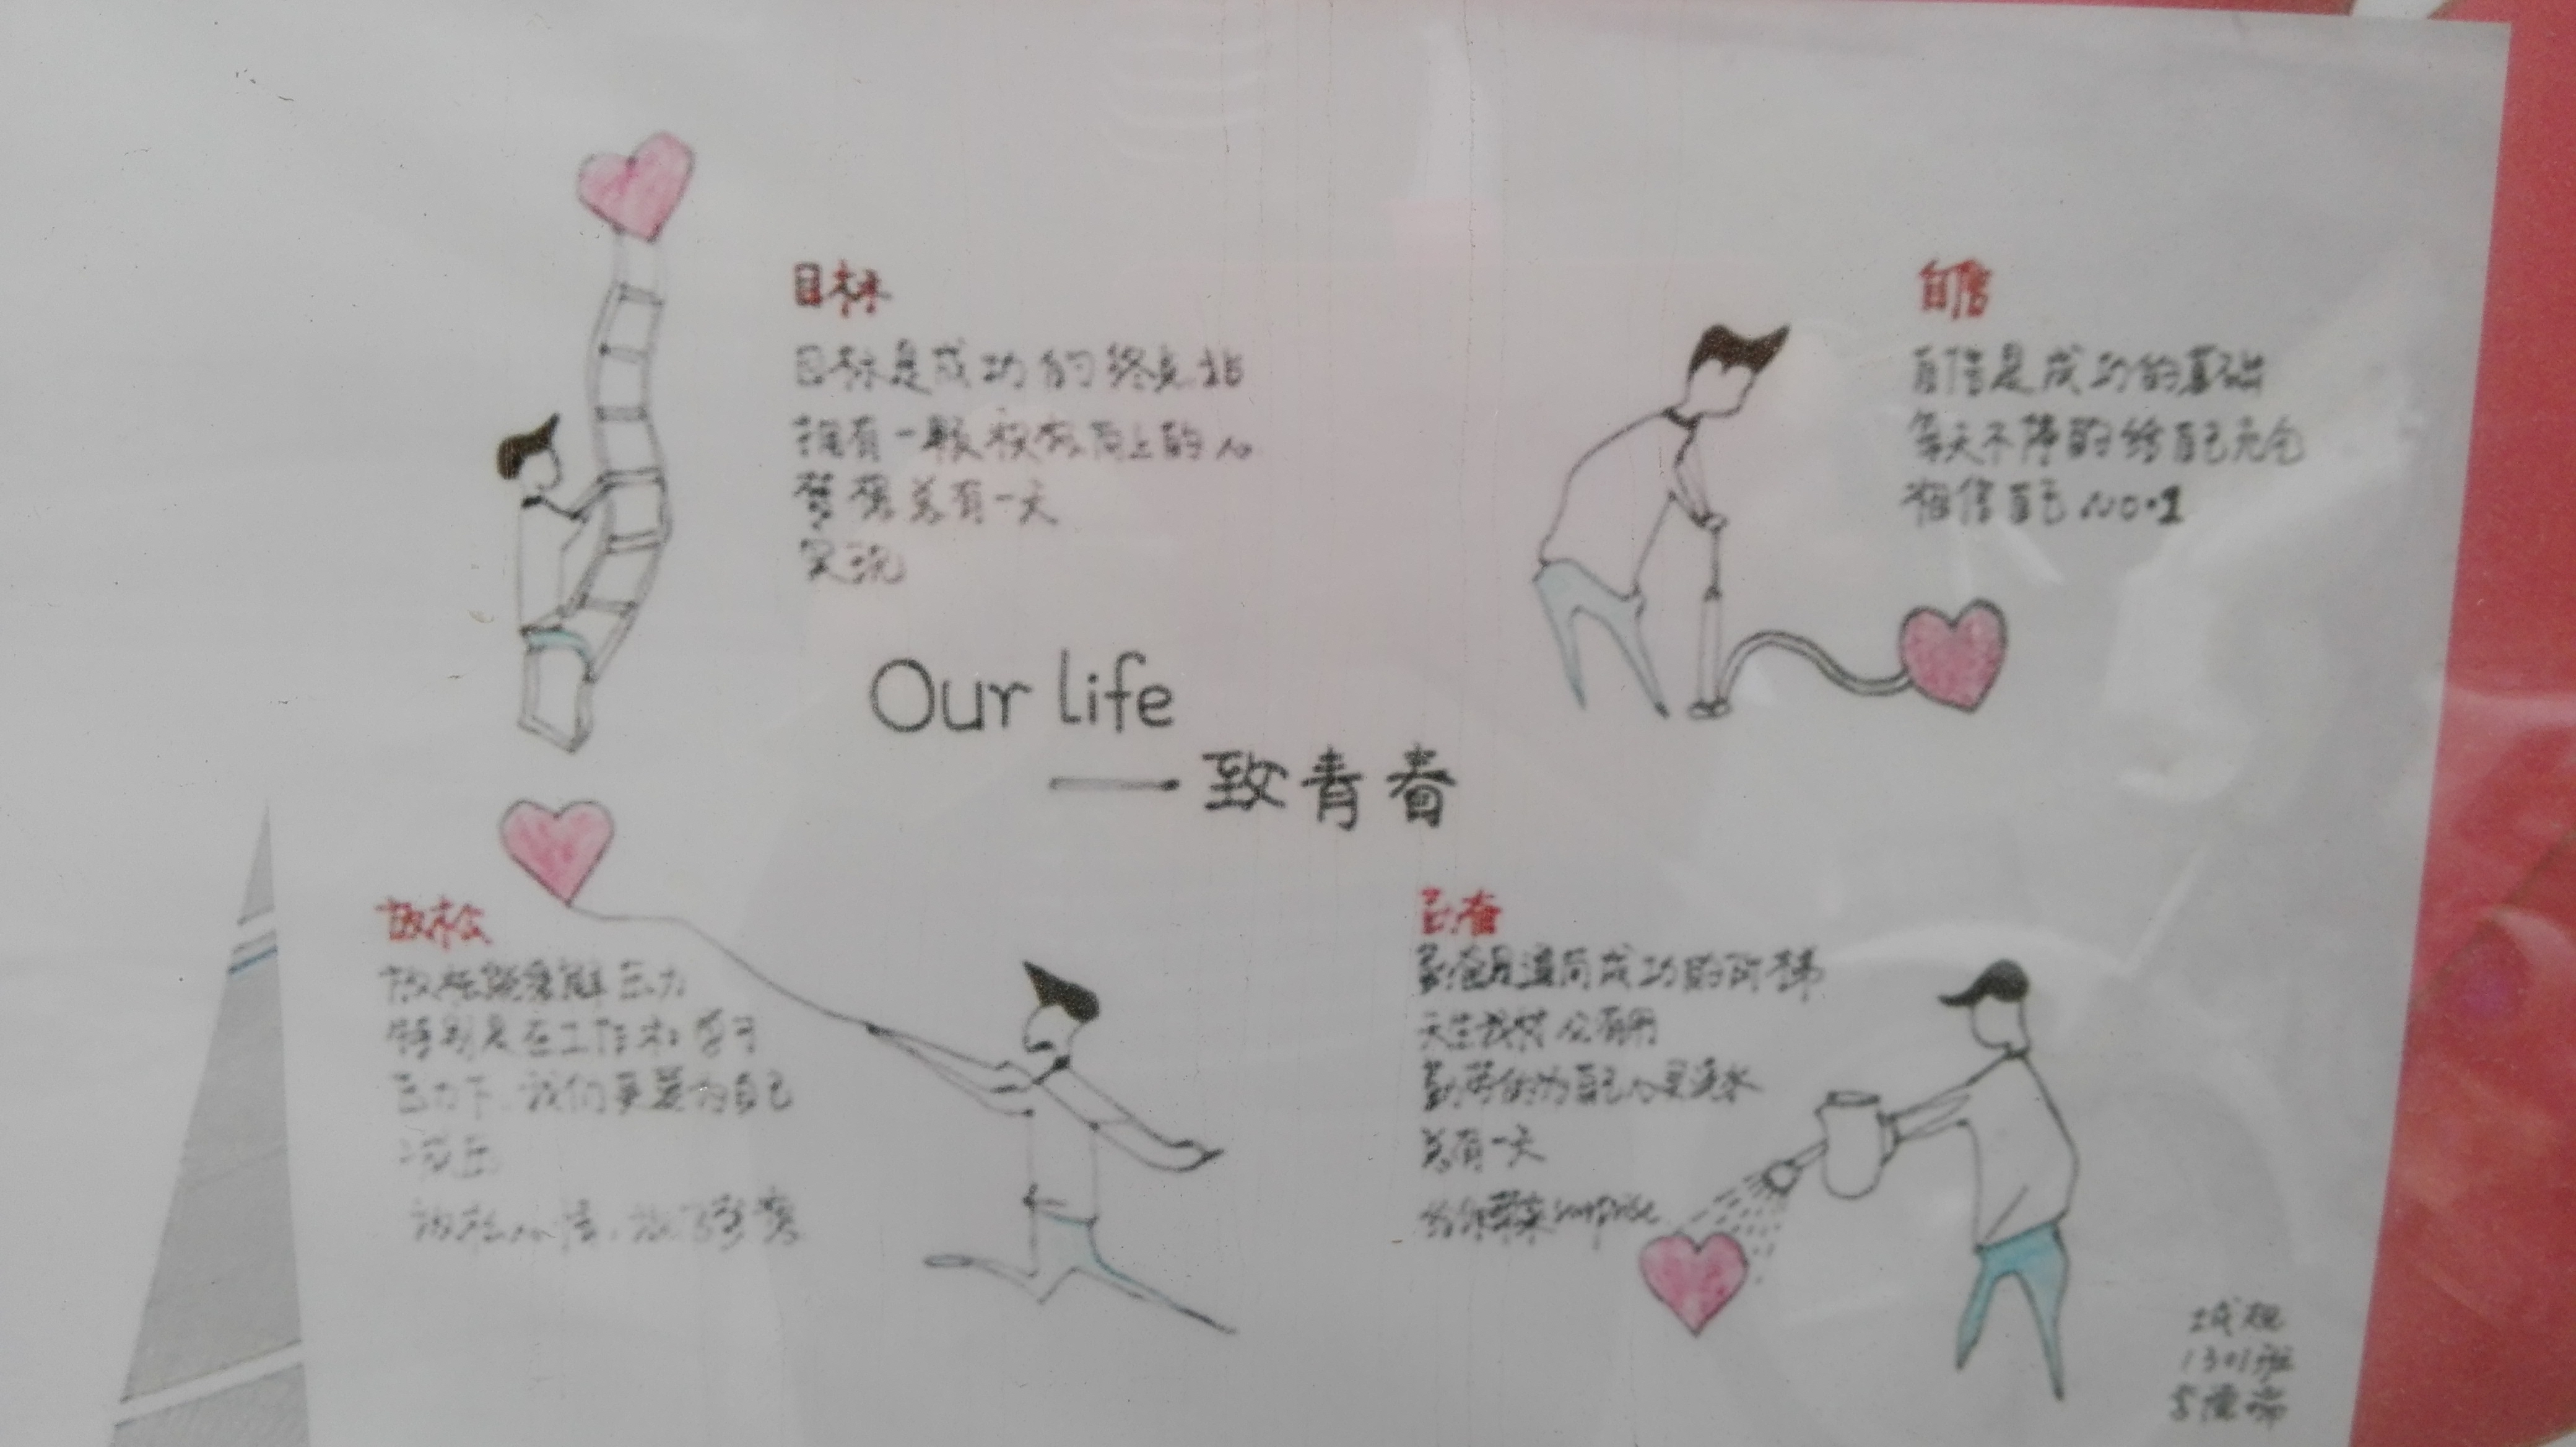 目标
目标是成功的终点站
拥有一颗积极向上的心
梦想总有一天
实现
自信
自信是成功的基础
每天不停的给自己充电
相信自己 NO.1
Our life
——致青春
放松
放松能缓解压力
特别是在工作和学习
压力下,我们更要为自己
减压
放松心情,放飞梦想
勤奋
勤奋是通向成功的阶梯
天生我材必有用
勤劳的为自己心灵浇水
总有一天
给你带来 surprise
城规
1301班